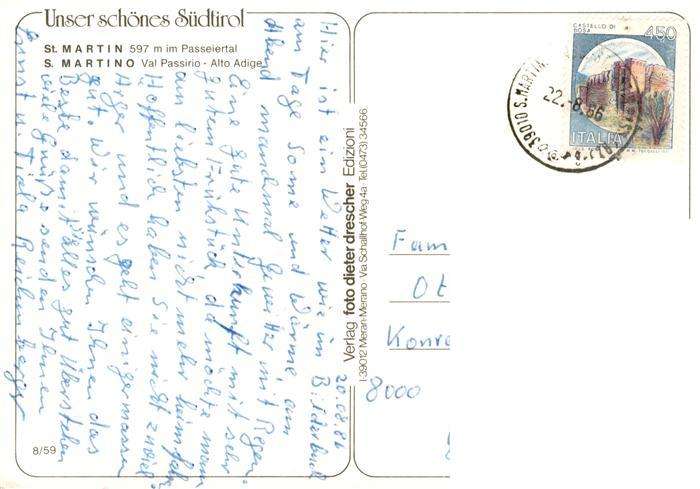 Unser schönes Südtirol
St. MARTIN 597 m im Passeiertal
S. MARTINO Val Passirio - Alto Adige
20.08.86
Hier ist ein Wetter wie im Bilderbuch
am Tage Sonne und Wärme, am
Abend manchmal Gewitter mit Regen.
Eine gute Unterkunft mit sehr
gutem Frühstück, da möchte man
am liebsten nicht mehr heimfahr
Hoffentlich haben Sie nicht zuviel
Ärger und es geht einigermassen
gut. Wir wünschen Ihnen das
Beste damit Sie alles gut überstehen
viele Grüße senden Ihnen
Ernst u.
8/59
Verlag foto dieter drescher Edizioni
I-39012 Meran-Merano Via Schaffhof-Weg 4a Tel. (0473) 34566
CASTELLO DI
BOSA
450
ITALIA
39010 S. MARTIN
22.-8.86
Fam
Ot
Konr
8000